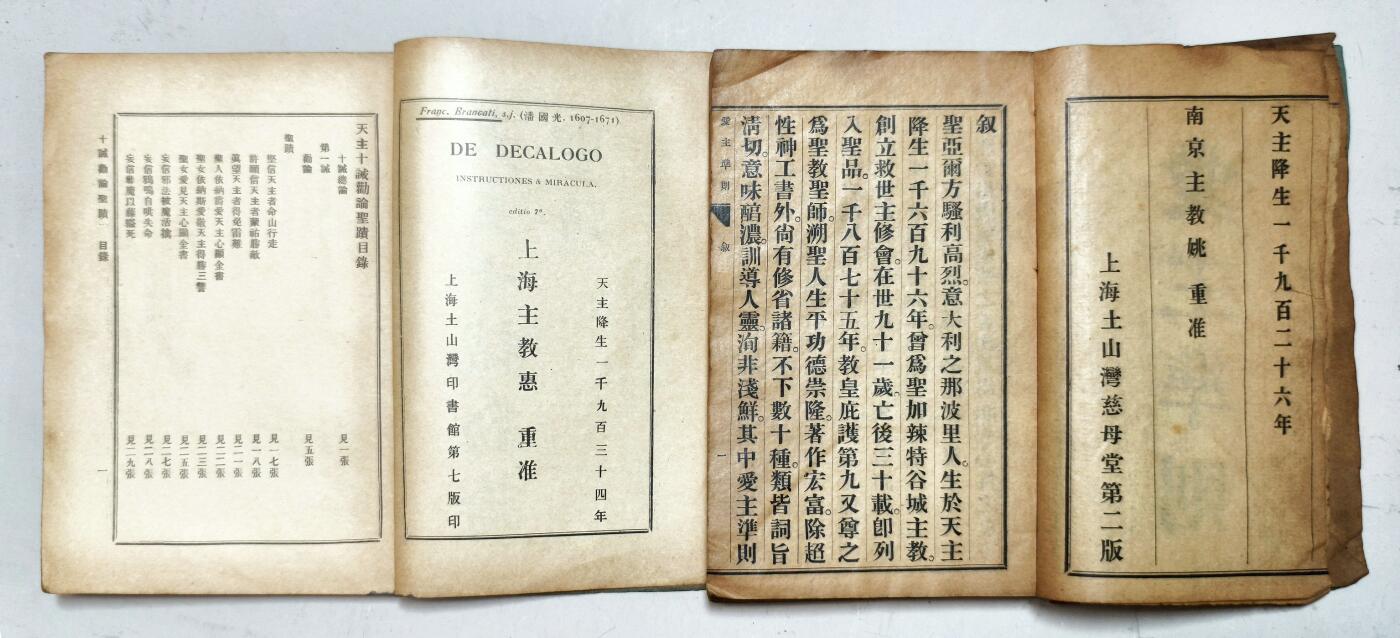 天主降生一千九百二十六年
南京主教姚 重准
上海土山灣慈母堂第二版
叙
聖亞爾方騷利高烈。意大利之那波里人。生於天主
降生一千六百九十六年。曾爲聖加辣特谷城主教。
創立救世主修會。在世九十一歲。亡後三十載。卽列
入聖品。一千八百七十五年。教皇庇護第九又尊之
爲聖教聖師。溯聖人生平功德崇隆。著作宏富。除超
性神工書外。尙有修省諸籍。不下數十種。類皆詞旨
淸切。意味醕濃。訓導人靈。洵非淺鮮。其中愛主準則
愛主準則 叙 一
Franc. Brancati, s.j. (潘國光. 1607-1671)
DE DECALOGO
INSTRUCTIONES & MIRACULA.
editio 7ª.
天主降生一千九百三十四年
上海主教惠 重准
上海土山灣印書館第七版印
天主十誡勸論聖蹟目錄
十誡總論 見一張
第一誡
勸論 見五張
聖蹟
堅信天主者命山行走 見一七張
許願信天主者蒙祐勝敵 見一八張
冀望天主者得免雷難 見二一張
聖人依納爵愛天主心顯全書 見二二張
聖女依納斯愛敬天主得勝三讐 見二三張
聖女愛見天主心顯全書 見二五張
妄信邪法被魔活擒 見二七張
妄信鴉鳴自哄失命 見二八張
妄信邪魔以藤縊死 見二九張
十誡勸論聖蹟 目錄 一